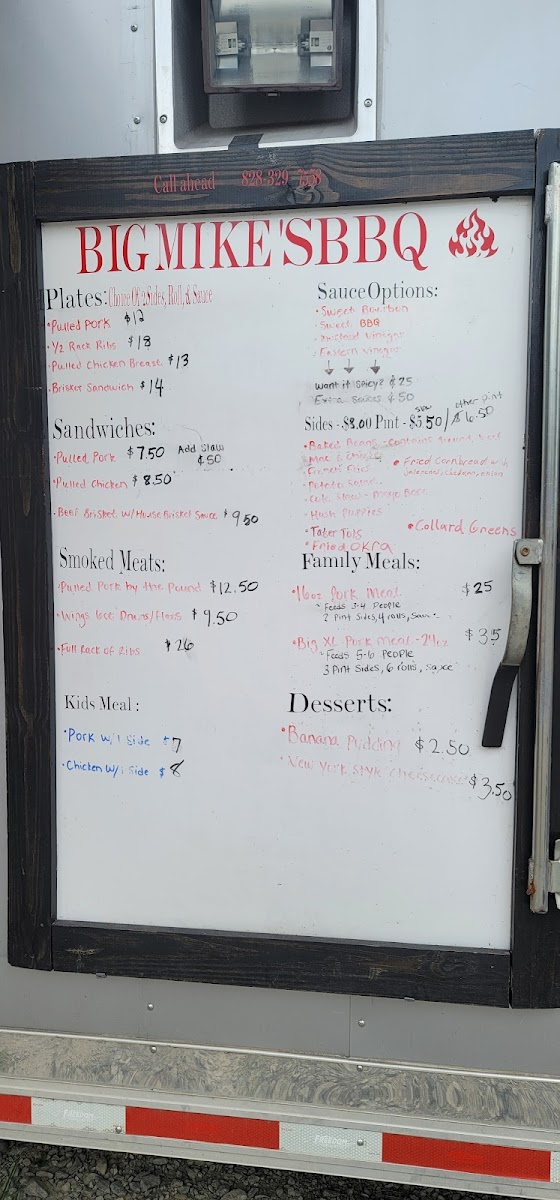 Call ahead 828-329-
BIG MIKE'S BBQ
Plates: Choice Of 2 Sides, Roll, & Sauce
•Pulled Pork $12
•1/2 Rack Ribs $18
•Pulled Chicken Breast $13
•Brisket Sandwich $14
Sandwiches:
•Pulled Pork $7.50 Add Slaw $.50
•Pulled Chicken $8.50
•Beef Brisket W/House Brisket Sauce $9.50
Smoked Meats:
•Pulled Pork by the Pound $12.50
•Wings 6ct Drums/Flats $9.50
•Full Rack of Ribs $26
Kids Meal:
•Pork W/1 Side $7
•Chicken W/1 Side $8
Sauce Options:
•Sweet Bourbon
•Sweet BBQ
•Mustard Vinegar
•Eastern Vinegar
Want it Spicy? $.25
Extra Sauces $.50
Sides - $3.00 Pint - $5.50 slaw / $6.50 other pint
•Baked Beans - Contains Ground Beef
•Mac & Cheese
•French Fries
•Fried Cornbread with jalapenos, cheddar, onion
•Potato Salad
•Cole Slaw - Mayo Base
•Hush Puppies
•Tater Tots
•Collard Greens
•Fried Okra
Family Meals:
•16oz Pork Meal $25
*Feeds 3-4 People
2 Pint Sides, 4 rolls, Sauce
•Big XL Pork Meal - 24oz $35
*Feeds 5-6 People
3 Pint Sides, 6 rolls, Sauce
Desserts:
•Banana Pudding $2.50
•New York Style Cheesecake $3.50
FREEDOM
FREEDOM